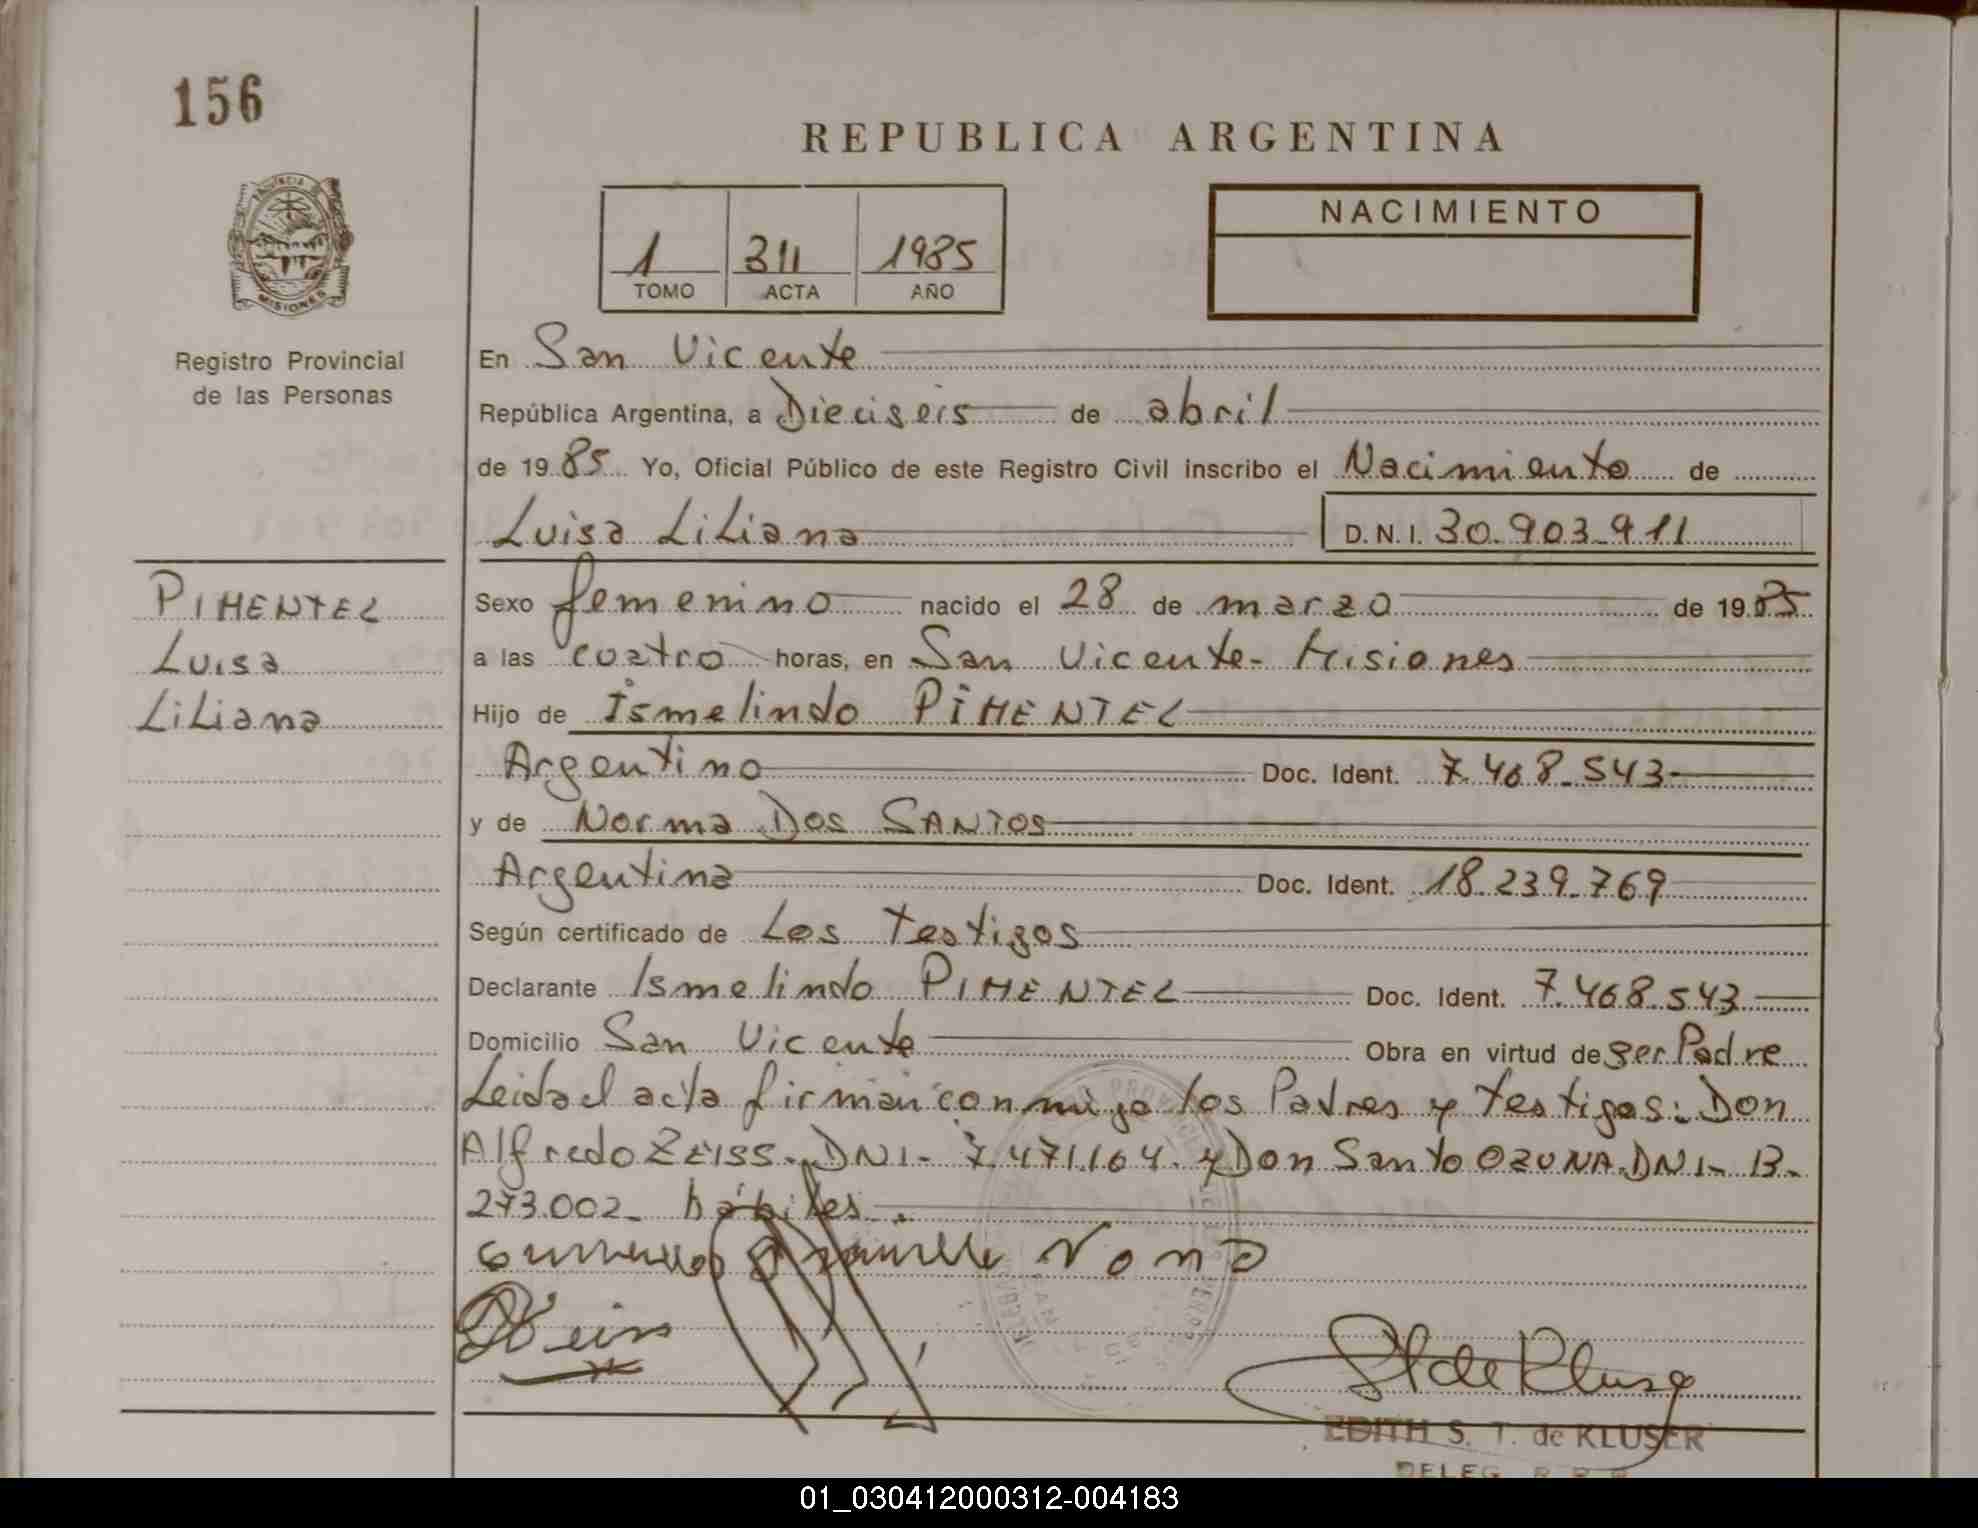 156
REPUBLICA ARGENTINA
PROVINCIA D
MISIONES
Registro Provincial
de las Personas
1 311 1985
TOMO ACTA AÑO
NACIMIENTO
En San Vicente
República Argentina, a Dieciseis de abril
de 19 85 Yo, Oficial Público de este Registro Civil inscribo el Nacimiento de
Luisa Liliana D.N.I. 30.903.911
PIMENTEL
Luisa
Liliana
Sexo femenino nacido el 28 de marzo de 19 85
a las cuatro horas, en San Vicente - Misiones
Hijo de Ismelindo PIMENTEL
Argentino Doc. Ident. 7.468.543
y de Norma DOS SANTOS
Argentina Doc. Ident. 18.239.769
Según certificado de Los testigos
Declarante Ismelindo PIMENTEL Doc. Ident. 7.468.543
Domicilio San Vicente Obra en virtud de ser Padre
Leida el acta firman conmigo los Padres y testigos: Don
Alfredo ZEISS - DNI - 7.471.164. y Don Santo OZUNA DNI - 13.
273.002 - hábiles.
Noma
EDITH S. T. de KLUSER
DELEG. R. P. P.
01_030412000312-004183